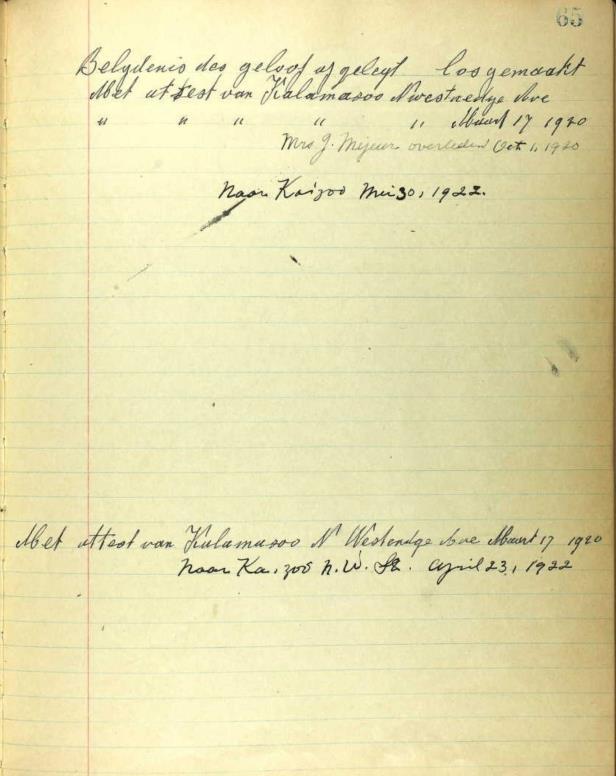 65
Belydenis des geloof afgelegt losgemaakt
Met attest van Kalamazoo N westnedge Ave
" " " " " Maart 17 1920
Mrs J. Mejeur overleden Oct 1, 1920
Naar Ka'zoo Mei 30, 1922.
Met attest van Kalamazoo N Westendge Ave Maart 17 1920
Naar Ka.zoo N.W. St. April 23, 1922